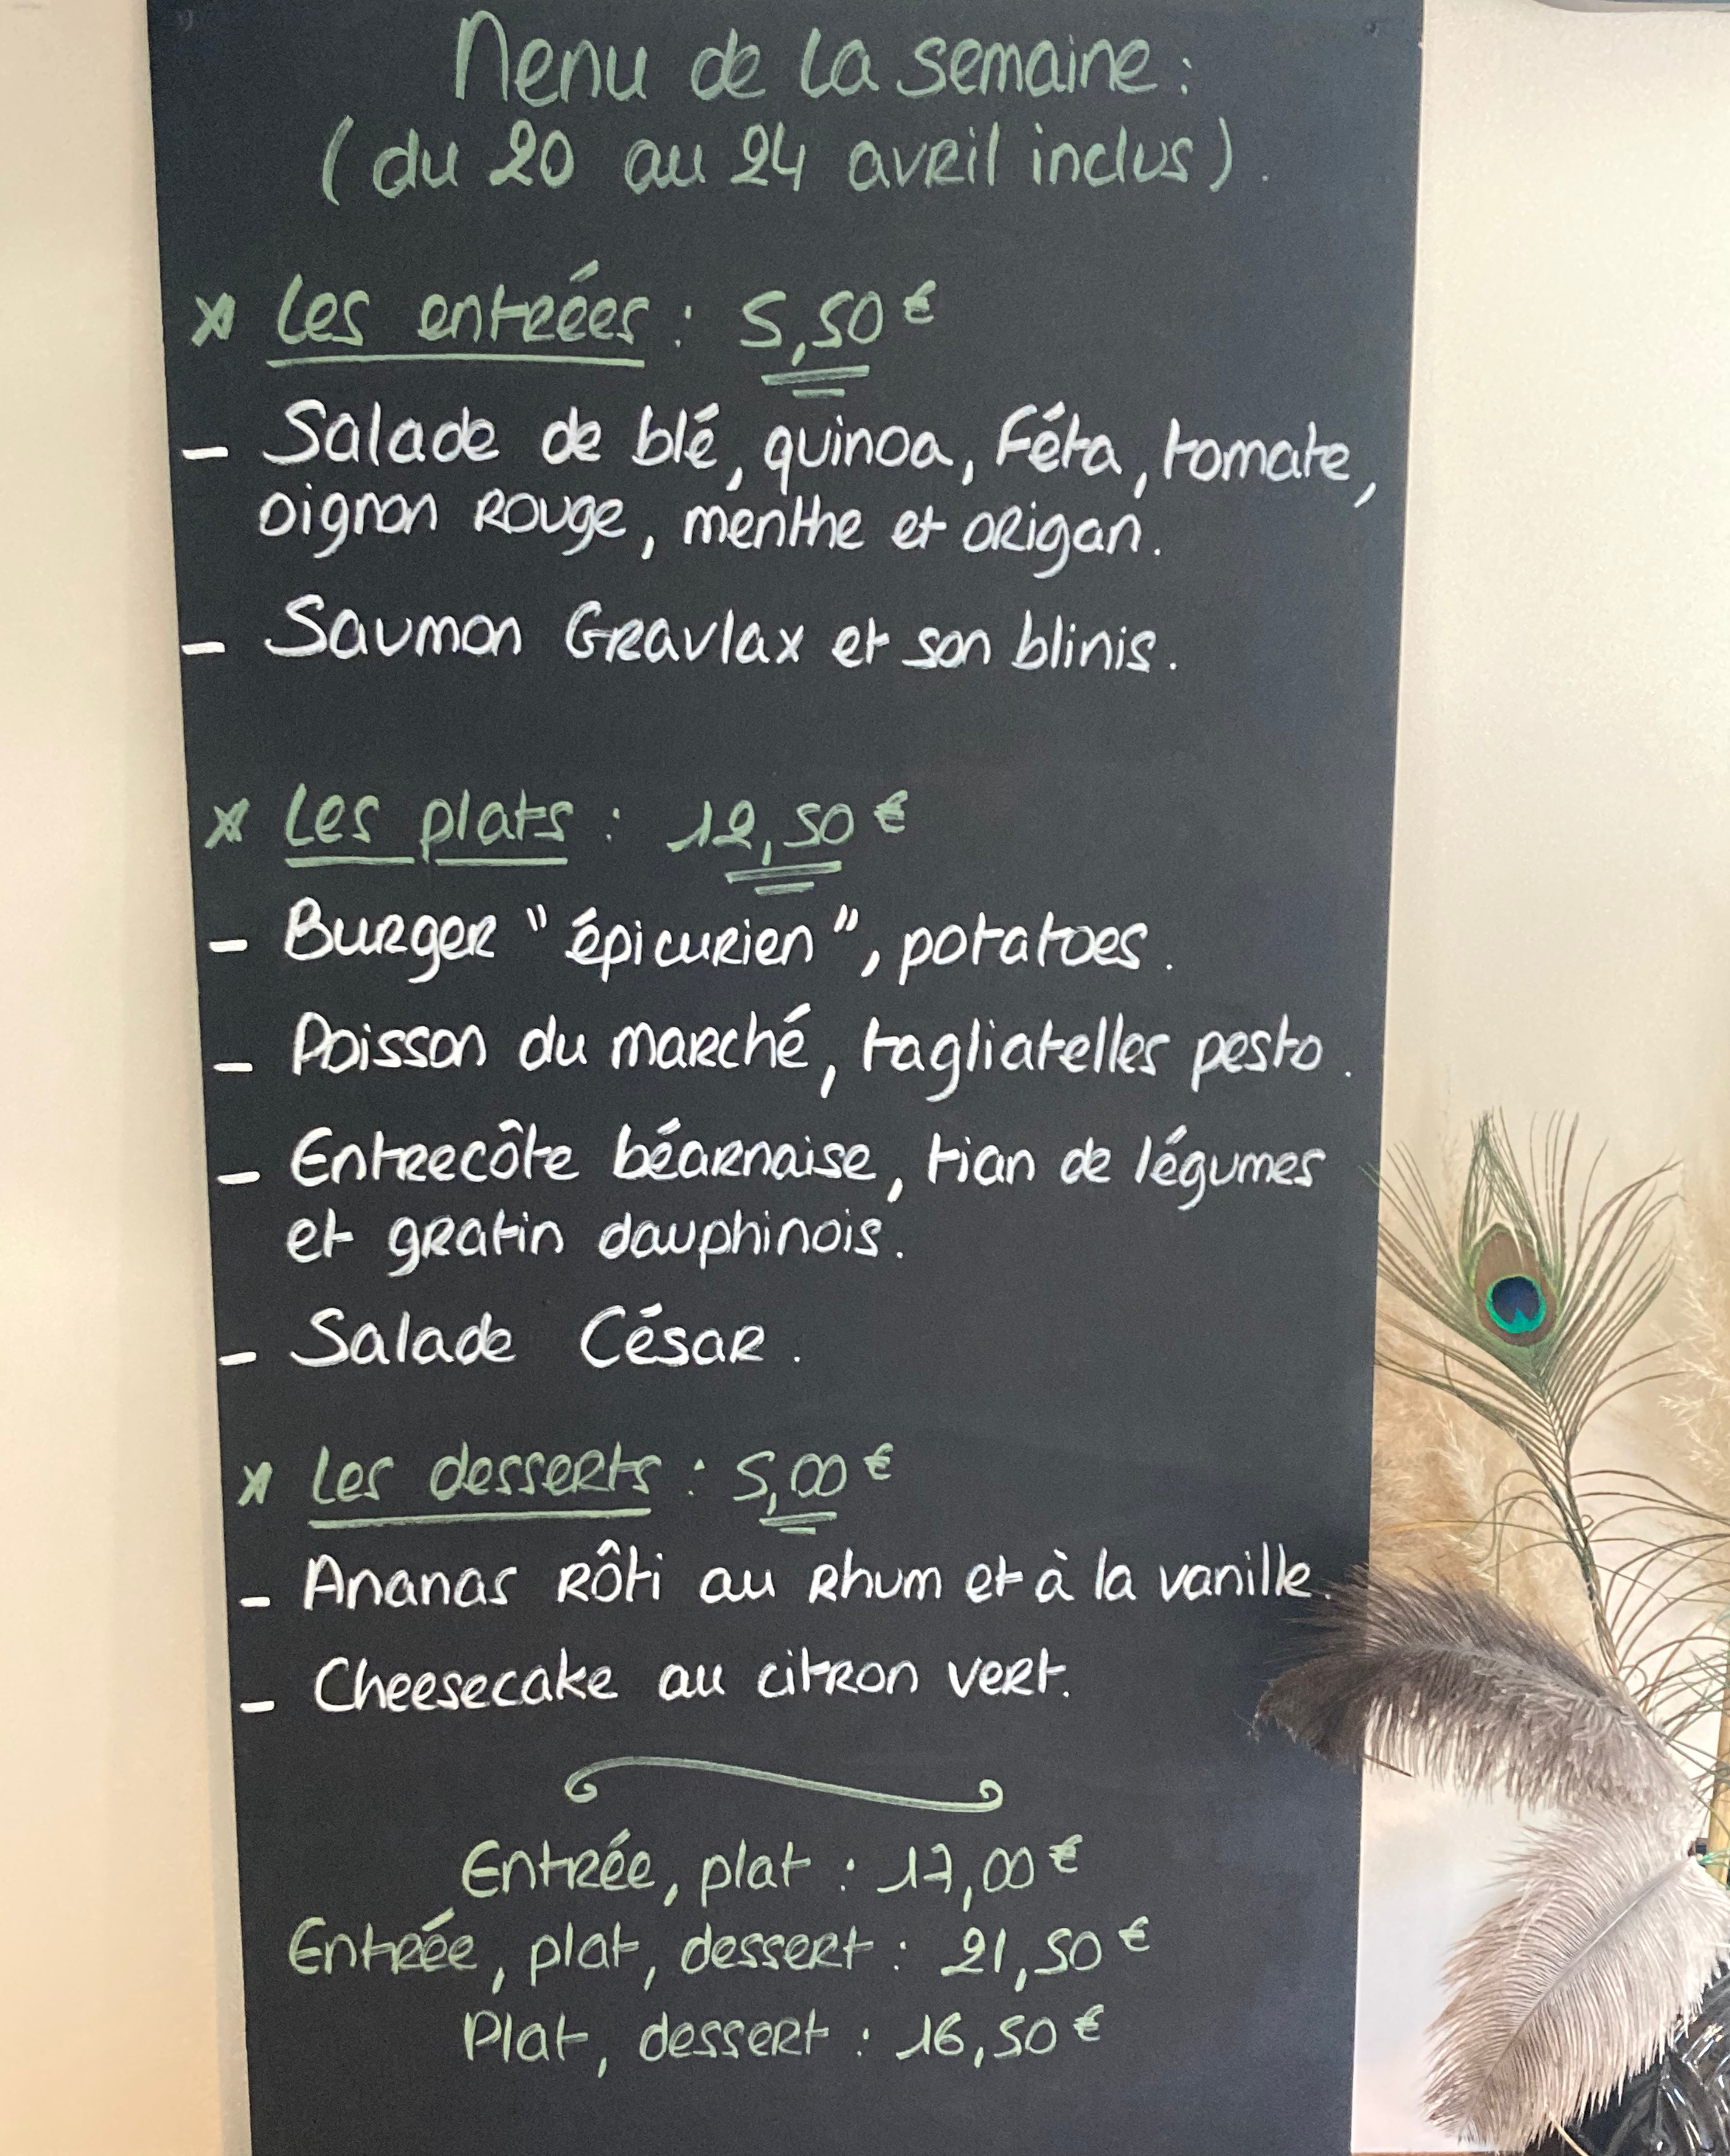 Menu de la semaine :
( du 20 au 24 avril inclus ) .
* Les entrées : 5,50 €
- Salade de blé, quinoa, Féta, tomate,
oignon rouge, menthe et origan.
- Saumon Gravlax et son blinis.
* Les plats : 12,50 €
- Burger "épicurien", potatoes.
- Poisson du marché, tagliatelles pesto.
- Entrecôte béarnaise, tian de légumes
et gratin dauphinois.
- Salade César.
* Les desserts : 5,00 €
- Ananas rôti au rhum et à la vanille.
- Cheesecake au citron vert.
Entrée, plat : 17,00 €
Entrée, plat, dessert : 21,50 €
Plat, dessert : 16,50 €